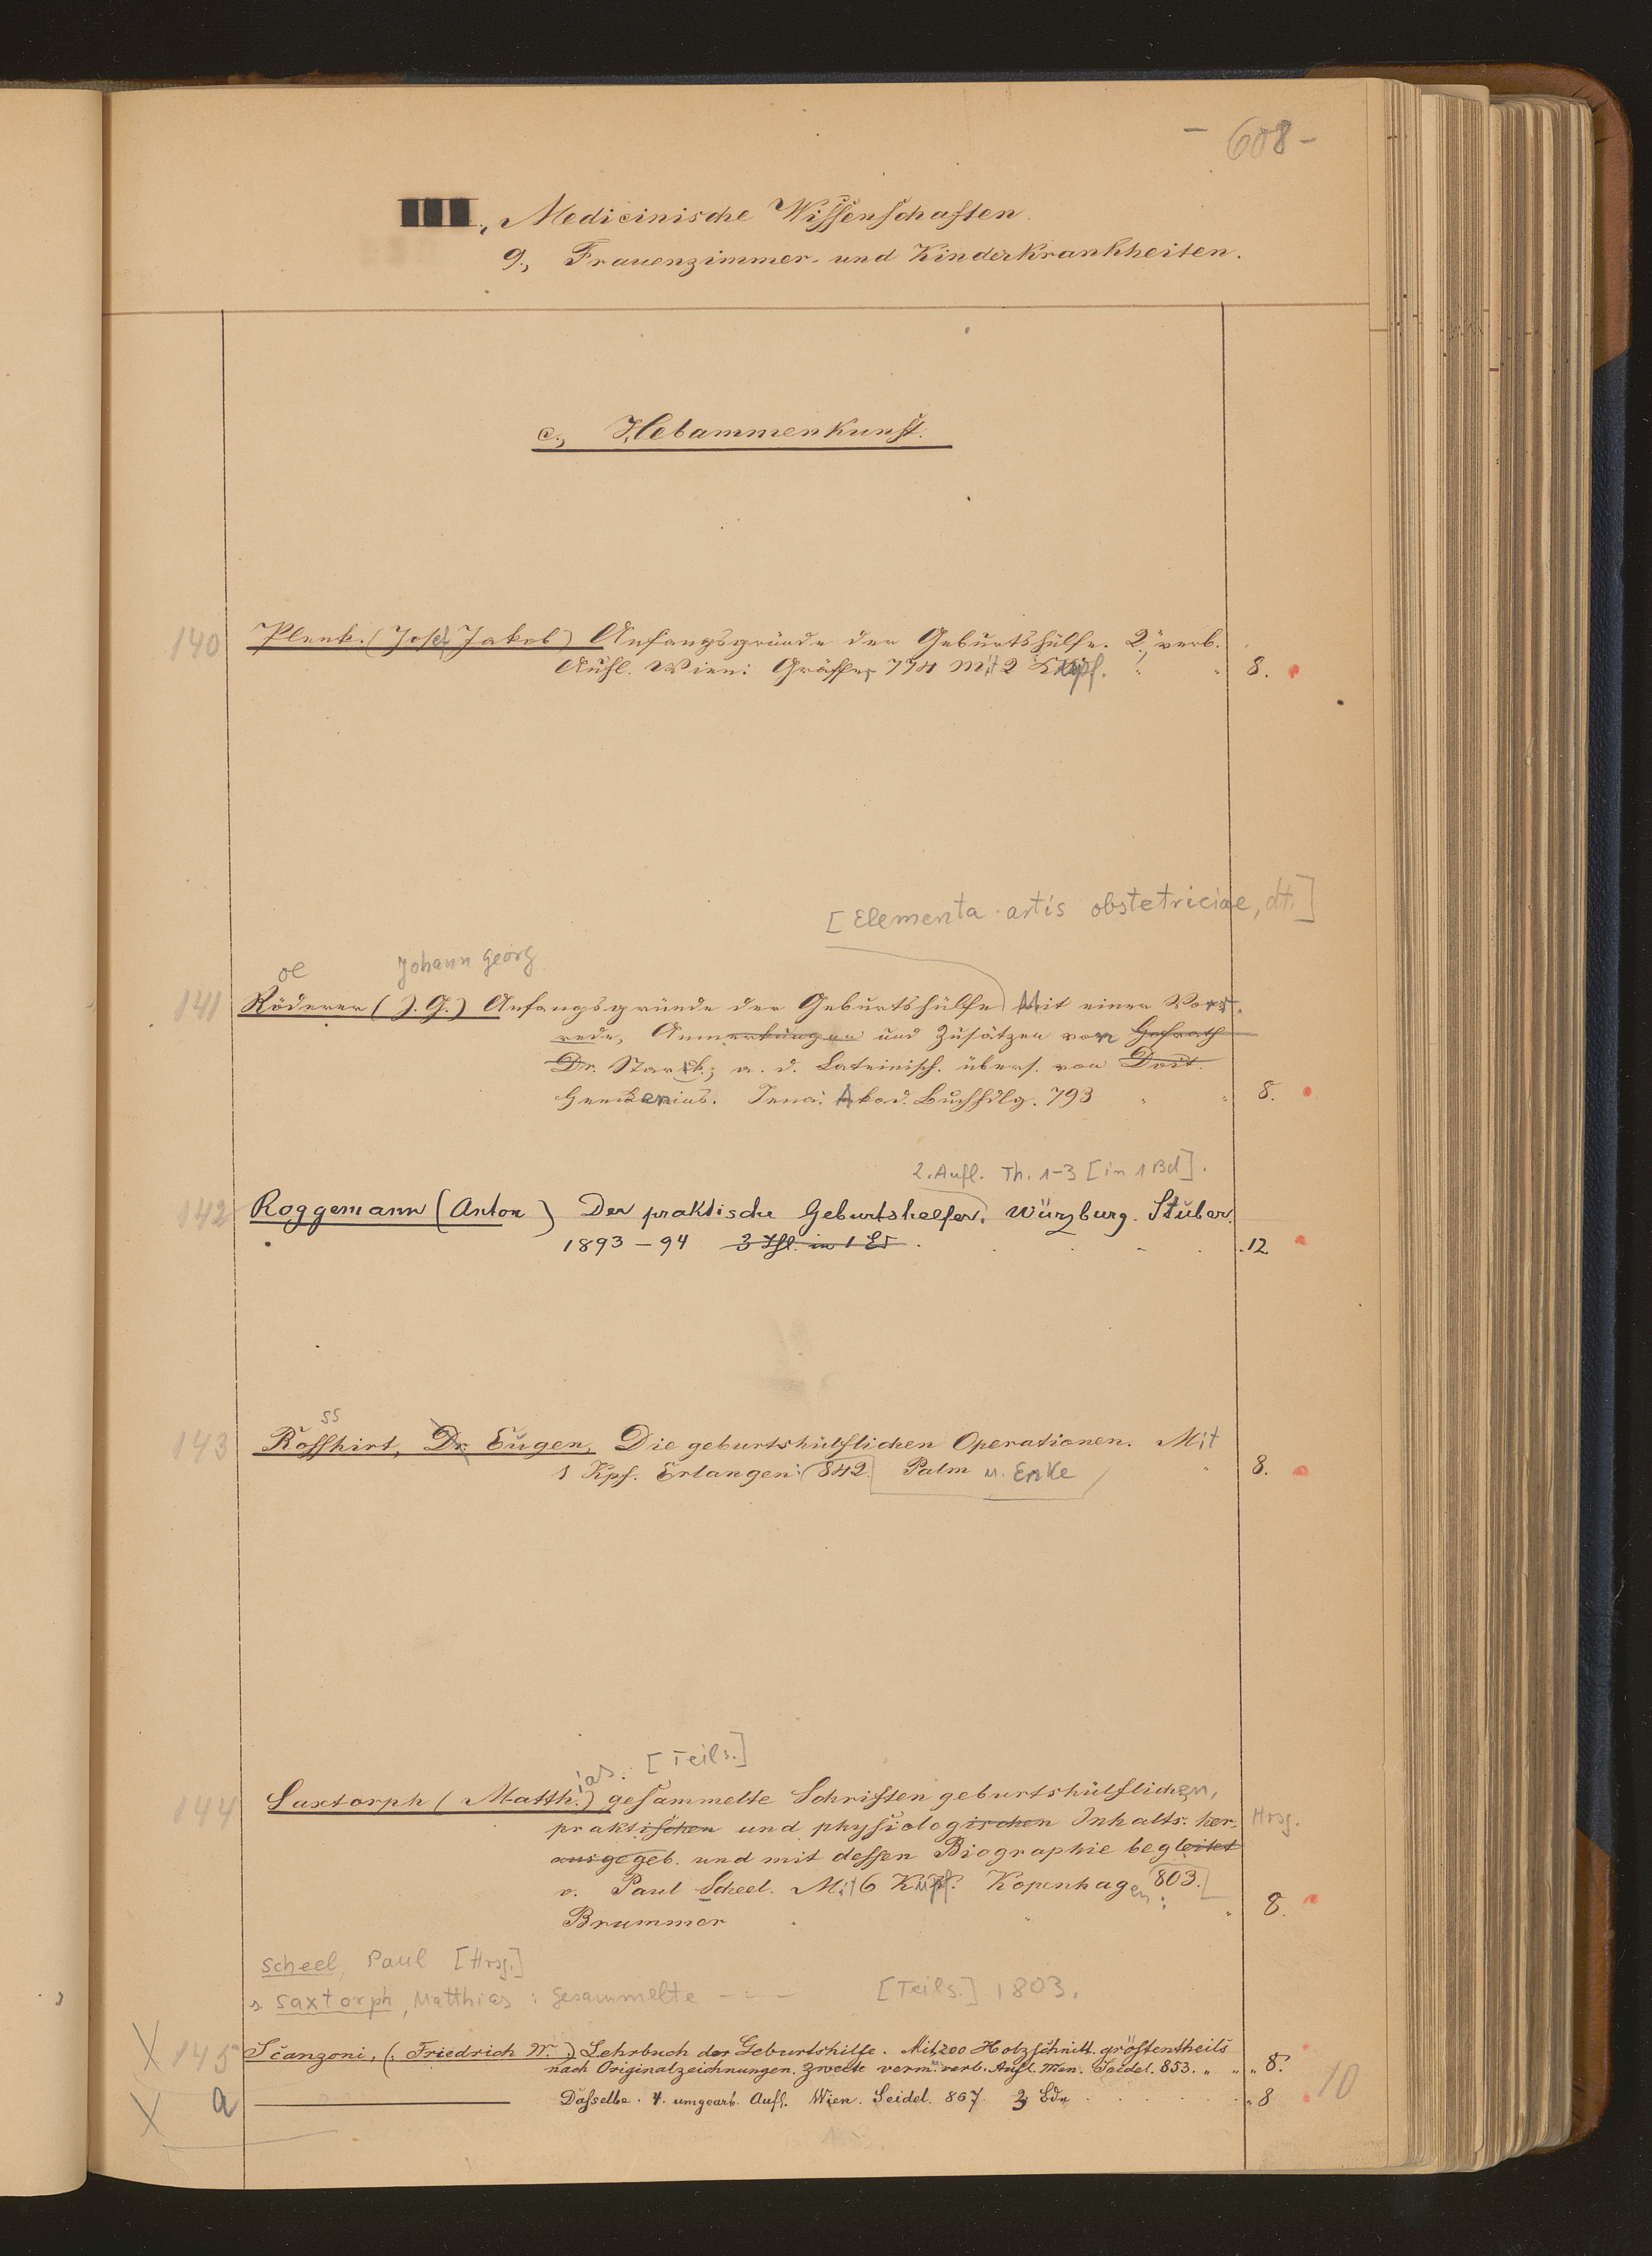 - 608 -
III., Medicinische Wissenschaften.
9., Frauenzimmer- und Kinderkrankheiten.
c., Hebammenkunst.
140 Plenk. (Josef Jakob) Anfangsgründe der Geburtshülfe. 2., verb.
Aufl. Wien: Gräffer, 774 Mit 2 Kupf. 8.
[Elementa artis obstetriciae, dt.]
oe Johann Georg
141 Röderer (J. G.) Anfangsgründe der Geburtshülfe Mit einer Vor-
rede, Anmerkungen und Zusätzen von Hofrath
Dr. Stark; a. d. Lateinisch. übers. von
Henkenius. Jena: Akad. Buchhdlg. 793 8.
2. Aufl. Th. 1-3 [in 1 Bd].
142 Roggemann (Anton) Der praktische Geburtshelfer. Würzburg. Stuber.
1893-94 3 Thl. in 1 Bd. 12.
ss
143 Rosshirt, Dr. Eugen, Die geburtshülflichen Operationen. Mit
1 Kpf. Erlangen: 842. Palm u. Enke 8.
ias. [Teils.]
144 Saxtorph (Matth.) gesammelte Schriften geburtshülflichen,
praktischen und physiologischen Inhalts: her- Hrsg.
ausgegeb. und mit dessen Biographie begleitet
v. Paul Scheel. Mit 6 Kupf. Kopenhagen: 803.
Brummer 8.
Scheel, Paul [Hrsg.]
s. Saxtorph, Matthias: Gesammelte - - - [Teils.] 1803.
X 145 Scanzoni, (Friedrich W.) Lehrbuch der Geburtshilfe. Mit 200 Holzschnitt. grösstentheils
nach Originalzeichnungen. Zweite verm. verb. Aufl. Wien. Seidel. 853. " " " 8.
X a Dasselbe. 4. umgearb. Aufl. Wien. Seidel. 867. Bde " 8 10